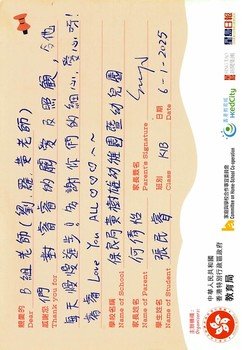 親愛的 B組老師(劉、羅、黃老師)
Dear
感謝您們對睿睿的關愛及照顧,令他
Thank you for
每天慢慢進步!感謝你們的細心、愛心呀!
睿睿 Love You ALL ♡♡♡~
學校名稱 保良局黃樹雄幼稚園暨幼兒園
Name of School
家長姓名 何倩
Name of Parent
家長簽名
Parent's Signature
學生姓名 張民睿
Name of Student
班別 K1B
Class
日期 6-1-2025
Date
主辦機構:
Organiser:
中華人民共和國
香港特別行政區政府
教育局
家庭與學校合作事宜委員會
Committee on Home-School Co-operation
香港教育城
HKedCity
星島日報